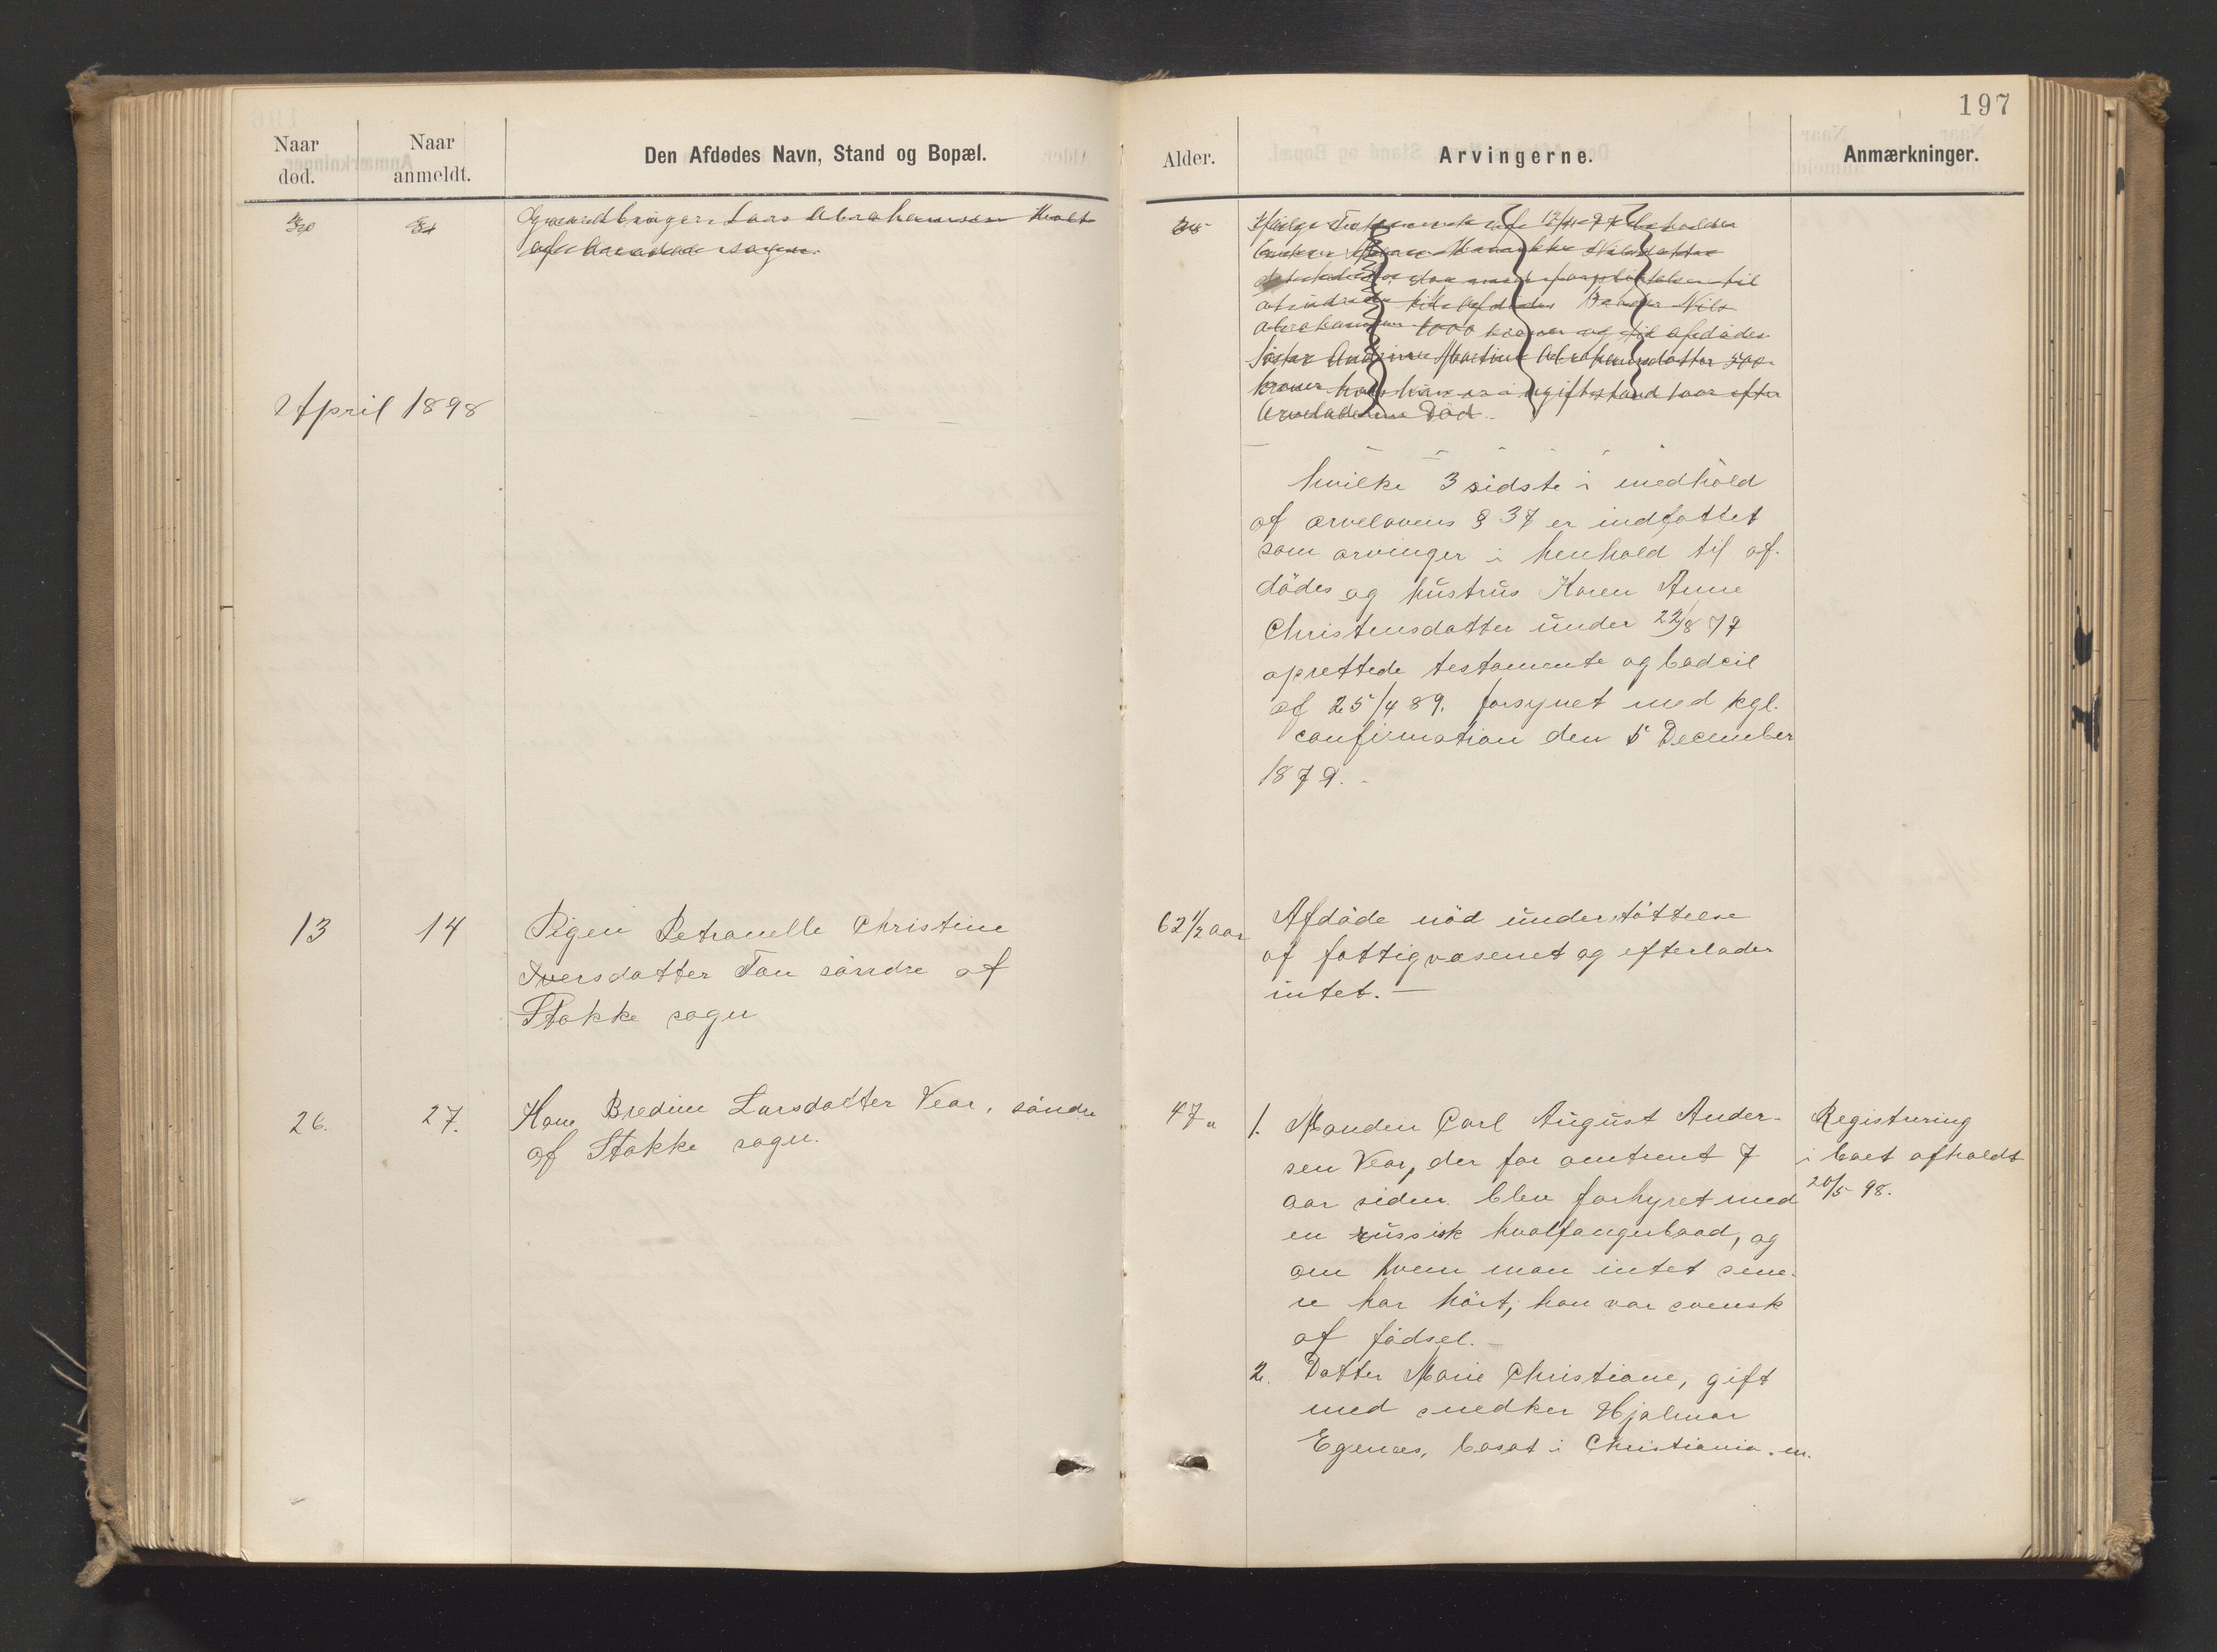 197
Naar
død.
Naar
anmeldt.
Den Afdødes Navn, Stand og Bopæl.
Alder.
Arvingerne.
Anmærkninger.
Gaardbruger Lars Abrahamsen Holt
af sogn.
Ifølge Testamente af 12/11 97 beholder
til
at udrede til Afdødes Broder Nils
Abrahamsen 1000 kroner og til afdødes
Søster Martine Abrahamsdatter 200
kroner hvis hun er i ugift stand 1 aar efter
Arveladerens Død.
April 1898
hvilke 3 sidste i medhold
af arvelovens § 37 er indsattet
som arvinger i henhold til af-
dødes og hustrus Karen Anne
Christensdatter under 22/8 79
oprettede testamente og codcil
af 25/4 89. forsynet med kgl.
confirmation den 5 December
1879.
13
14
Pigen Petronelle Christine
Iversdatter Tan søndre af
Stokke sogn
62 1/2 aar
Afdøde nød understøttelse
af fattigvæsenet og efterlader
intet.
26.
27.
Kone Bredine Larsdatter Vear, søndre
af Stokke sogn.
47 "
1. Manden Carl August Ander-
sen Vear, der for omtrent 7
aar siden blev forhyret med
en russisk hvalfangerbaad, og
om hvem man intet sene-
re har hört; han var svensk
af fødsel.
2. Datter Marie Christiane, gift
med snedker Hjalmar
Egenæs, bosat i Christiania. m.
Registrering
i boet afholdt
20/5 98.